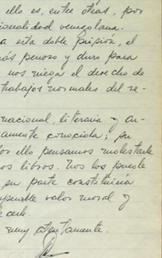 ello es, entre otras, por
cionalidad venezolana.
a esta doble prisión, el
más penoso y duro para
nos niega el derecho de
trabajos normales del re-
nacional, literaria y
amente conocida, su
or ello pensamos molestarle
os libros. Nos los puede
su parte constituiría
valor moral y
muy atentamente.